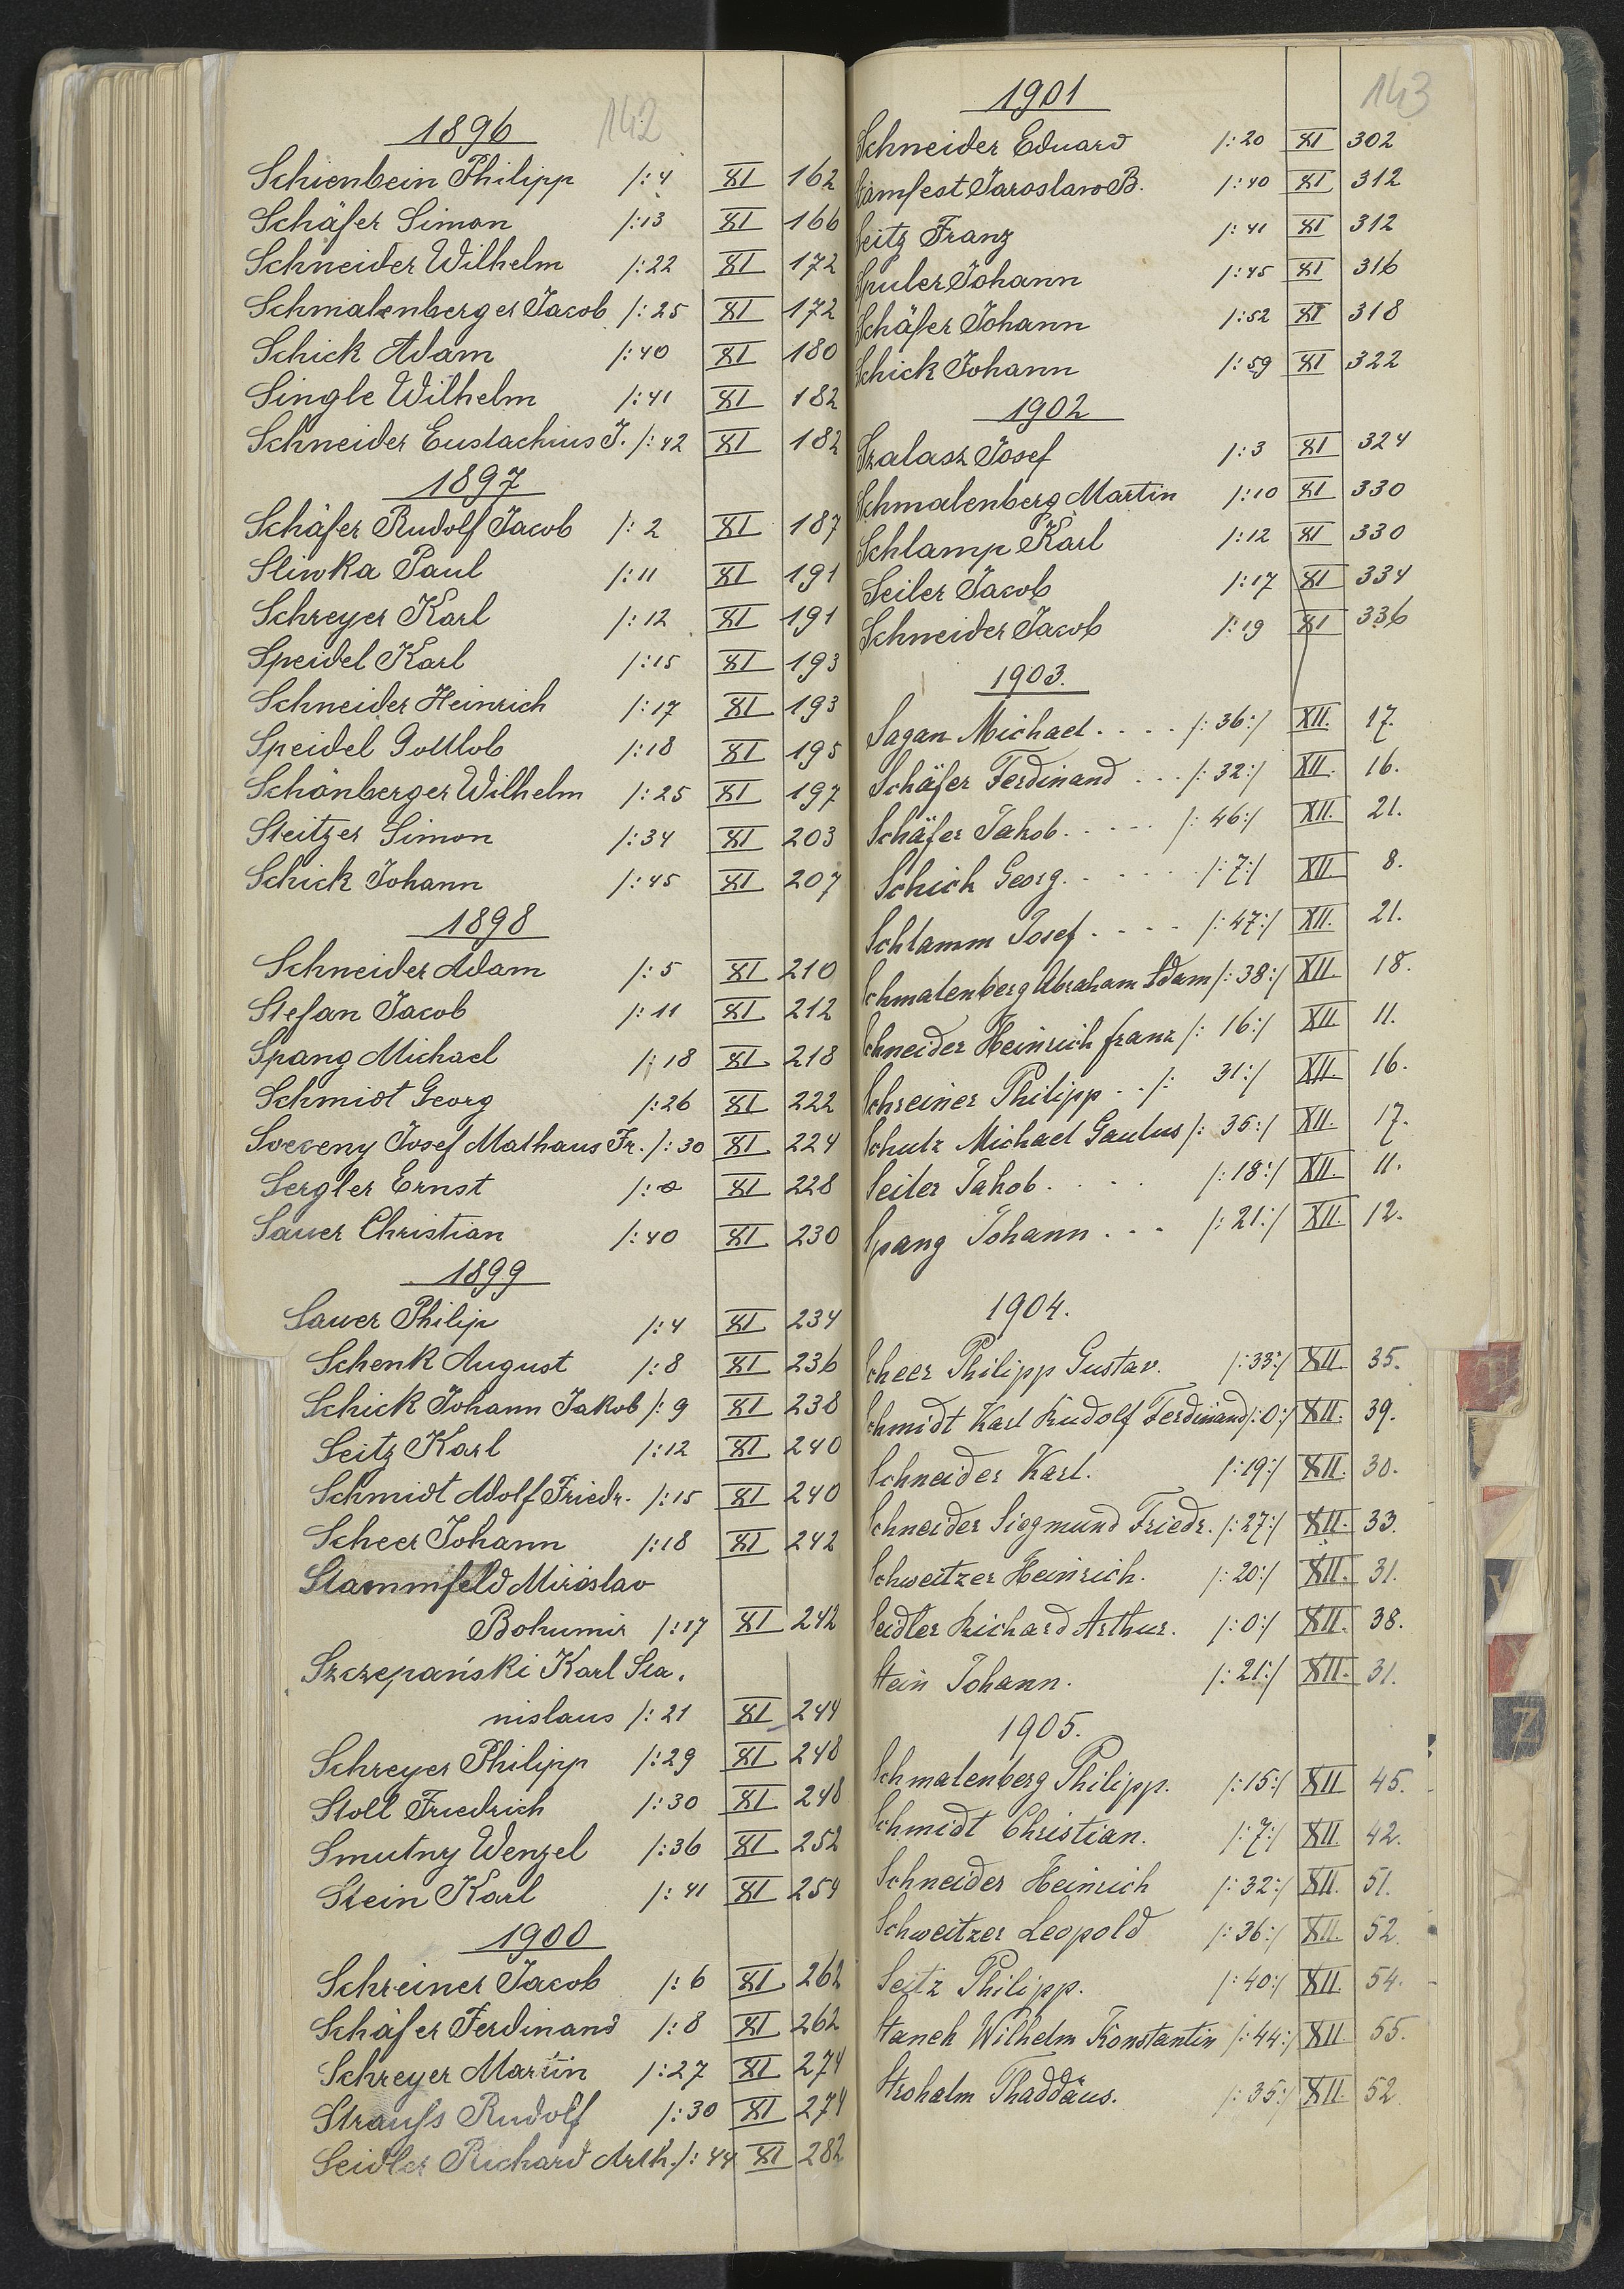 142
1896
Schienbein Philipp /: 4 XI 162
Schäfer Simon /: 13 XI 166
Schneider Wilhelm /: 22 XI 172
Schmalenberger Jacob /: 25 XI 172
Schick Adam /: 40 XI 180
Single Wilhelm /: 41 XI 182
Schneider Eustachius J. /: 42 XI 182
1897
Schäfer Rudolf Jacob /: 2 XI 187
Sliwka Paul /: 11 XI 191
Schreyer Karl /: 12 XI 191
Speidel Karl /: 15 XI 193
Schneider Heinrich /: 17 XI 193
Speidel Gottlob /: 18 XI 195
Schönberger Wilhelm /: 25 XI 197
Steitzer Simon /: 34 XI 203
Schick Johann /: 45 XI 207
1898
Schneider Adam /: 5 XI 210
Stefan Jacob /: 11 XI 212
Spang Michael /: 18 XI 218
Schmidt Georg /: 26 XI 222
Josef Mathaus Fr. /: 30 XI 224
Sergler Ernst /: XI 228
Sauer Christian /: 40 XI 230
1899
Sauer Philip /: 4 XI 234
Schenk August /: 8 XI 236
Schick Johann Jakob /: 9 XI 238
Seitz Karl /: 12 XI 240
Schmidt Adolf Friedr. /: 15 XI 240
Scheer Johann /: 18 XI 242
Stammfeld Miroslav
Bohumir /: 17 XI 242
Szczepański Karl Sta.
nislaus /: 21 XI 244
Schreyer Philipp /: 29 XI 248
Stoll Friedrich /: 30 XI 248
Smutny Wenzel /: 36 XI 252
Stein Karl /: 41 XI 254
1900
Schreiner Jacob /: 6 XI 262
Schäfer Ferdinand /: 8 XI 262
Schreyer Martin /: 27 XI 274
Strauss Rudolf /: 30 XI 274
Seidler Richard Arth. /: 44 XI 282
143
1901
Schneider Eduard /: 20 XI 302
Stamfest Jaroslaw B. /: 40 XI 312
Seitz Franz /: 41 XI 312
Spuler Johann /: 45 XI 316
Schäfer Johann /: 52 XI 318
Schick Johann /: 59 XI 322
1902
Szalasz Josef /: 3 XI 324
Schmalenberg Martin /: 10 XI 330
Schlamp Karl /: 12 XI 330
Seiler Jacob /: 17 XI 334
Schneider Jacob /: 19 XI 336
1903.
Sagan Michael . . . . /: 36:/ XII. 17.
Schäfer Ferdinand . . . /: 32:/ XII. 16.
Schäfer Jakob . . . . . /: 46:/ XII. 21.
Schick Georg . . . . . . /: 7:/ XII. 8.
Schlamm Josef . . . . /: 47:/ XII. 21.
Schmalenberg Abraham Adam /: 38:/ XII. 18.
Schneider Heinrich Franz /: 16:/ XII. 11.
Schreiner Philipp . . /: 31:/ XII. 16.
Schulz Michael Gaulus /: 35:/ XII. 17.
Seiler Jakob . . . . /: 18:/ XII. 11.
Spang Johann . . . /: 21:/ XII. 12.
1904.
Scheer Philipp Gustav. /: 33:/ XII. 35.
Schmidt Karl Rudolf Ferdinand /: 0:/ XII. 39.
Schneider Karl. /: 19:/ XII. 30.
Schneider Siegmund Friedr. /: 27:/ XII. 33.
Schweitzer Heinrich. /: 20:/ XII. 31.
Seidler Richard Arthur. /: 0:/ XII. 38.
Stein Johann. /: 21:/ XII. 31.
1905.
Schmalenberg Philipp. /: 15:/ XII 45.
Schmidt Christian. /: 7:/ XII. 42.
Schneider Heinrich /: 32:/ XII. 51.
Schweitzer Leopold /: 36:/ XII. 52.
Seitz Philipp. /: 40:/ XII. 54.
Stanek Wilhelm Konstantin /: 44:/ XII 55.
Strohalm Thaddäus. /: 35:/ XII. 52
Z